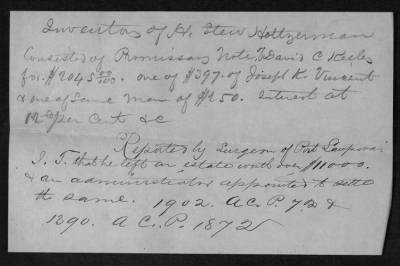 Inventory of H. Stew Holtzerman
Consisted of Promissory Note To David C Keeler
for $2045 00/100. one of $397. of Joseph K. Vincent
& one of Same Man of $250. Interest at
12 per cent &c
Reported by Surgeon of Post Lampwai
I. T. that he left an estate worth over $11000.
& an administrator appointed to settle
the same. 1902. A C. P. 72 &
1390. A C. P. 1872